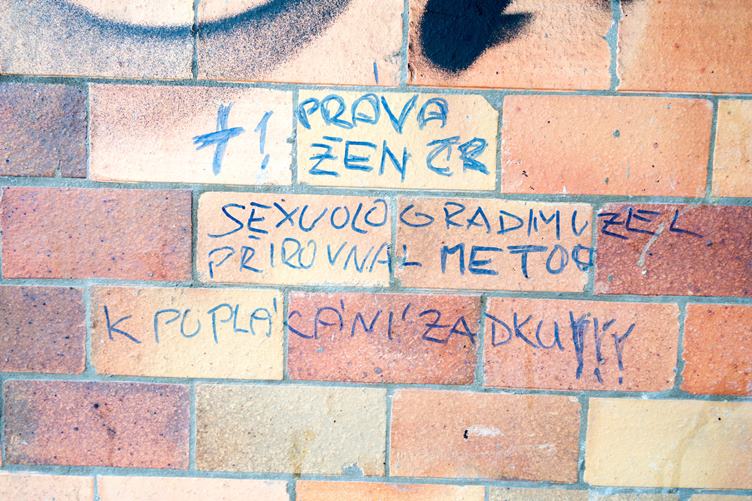 +! PRÁVA
ŽEN ČR
SEXUOLOG RADIM UZEL
PŘIROVNAL METOO
K POPLÁCÁNÍ ZADKU!!!